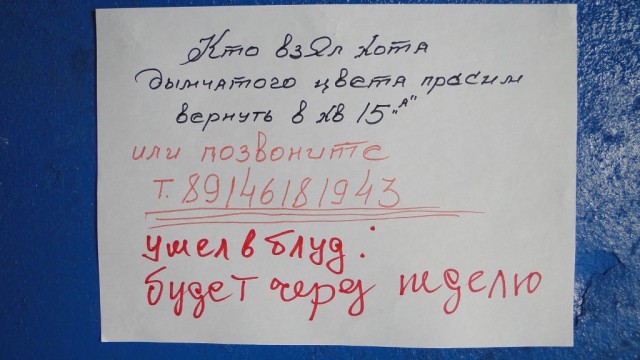 Кто взял кота
дымчатого цвета прасим
вернуть в кв 15 „А"
или позвоните
т. 89146181943
ушел в блуд.
будет через неделю